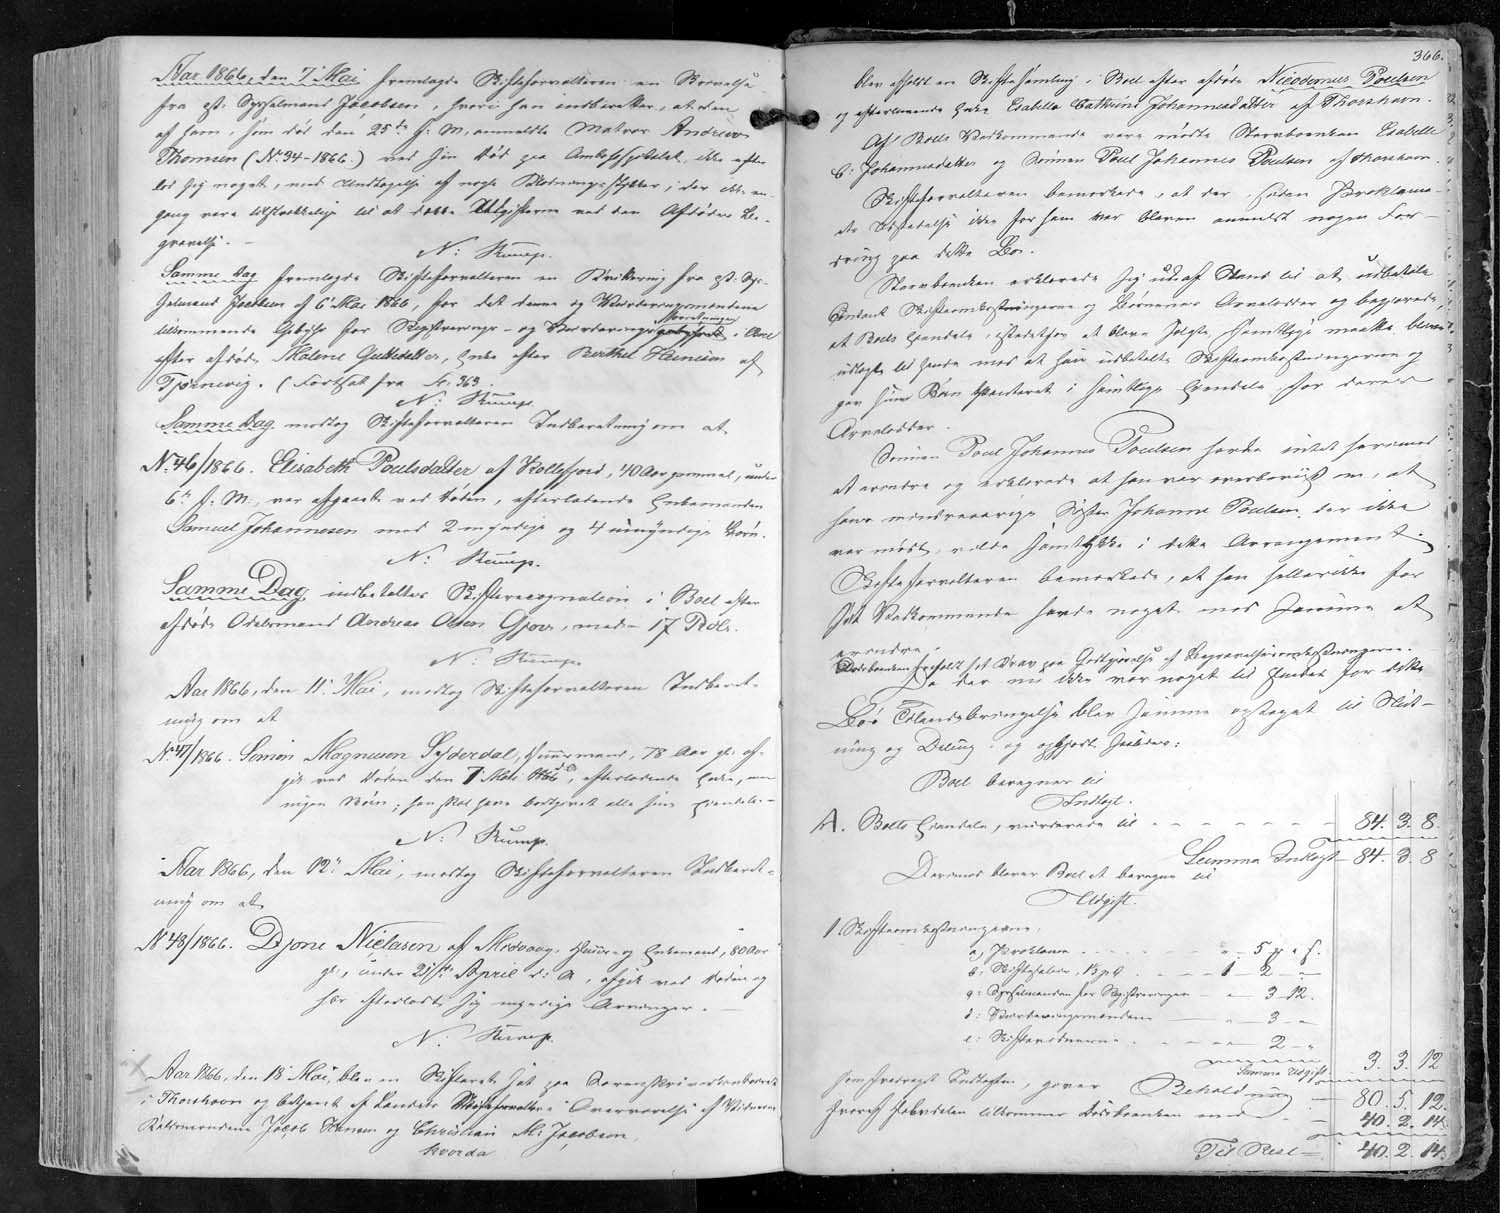 Aar 1866, den 7 Mai, fremlagde Skifteforvalteren en Skrivelse
fra cst. Sysselmand Jacobsen, hvori han indberetter, at den
af ham, som død den 25de f: M, anmeldte Matros Andreas
Thomsen (No 34-1866.) ved sin Død paa Amtshospitalet, ikke efter-
lod sig noget, med Undtagelse af nogle Klædningsstykker, der ikke en-
gang vare tilstrækkelige til at dække Udgifterne ved den Afdødes Be-
gravelse.
N: Rump.
Samme Dag fremlagde Skifteforvalteren en Kvittering fra cst. Sys-
selmand Jacobsen af 6 Mai 1866, for det denne og Vurderingsmændene
tilkommende Gebyhr for Registrerings- og Vurderingsforretningen i Boet
efter afdøde Malene Guttesdatter, Enke efter Berthel Hansen af
Tjørnevig. (Fortsat fra S: 363.
N: Rump.
Samme Dag modtog Skifteforvalteren Indberetning om at
No 46/1866. Elisabeth Poulsdatter af Kollefjord, 40 Aar gammel, under
6te f. M. var afgaaet ved Døden, efterladende Enkemanden
Samuel Johannesen med 2 myndige og 4 umyndige Børn.
N: Rump.
Samme Dag indbetaltes Skifterecognition i Boet efter
afdøde Odelsmand Andreas Olsen Gjov, med 17 Rdlr.
N: Rump.
Aar 1866, den 11 Mai, modtog Skifteforvalteren Indberet-
ning om at
No 47/1866. Simon Mognusen Syderdal, Huusmand, 78 Aar gl: af-
gik ved Døden den 7 Mai 1866, efterladende Enke, men
ingen Børn; han skal have bortgivet alle sine Eiendele.
N: Rump.
Aar 1866, den 12 Mai, modtog Skifteforvalteren Indberet-
ning om at
No 48/1866. Djone Nielasen af Midvaag, Huus- og Enkemand, 80 Aar
gl:, under 21de April d: A, afgik ved Døden og
har efterladt sig myndige Arvinger.
N: Rump.
Aar 1866, den 18 Mai, blev en Skifteret sat paa Sorenskriverkontoret
i Thorshavn og betjent af Landets Skifteforvalter i Overværelse af Vidnerne
Kaldsmændene Jacob Hansen og Christian M: Jacobsen,
hvorda
366.
blev afholdt en Skiftesamling i Boet efter afdøde Nicodemus Poulsen
og efterlevende Enke Elsabella Cathrine Johannesdatter af Thorshavn.
Af Boets Vedkommende vare mødte Stervboenken Elsabella
C: Johannesdatter og Sønnen Poul Johannes Poulsen af Thorshavn.
Skifteforvalteren bemærkede, at der siden Proklama-
ets Udstedelse ikke for ham var bleven anmeldt nogen For-
dring paa dette Bo.
Stervboenken erklærede sig ud af Stand til at udbetale
contant Skifteomkostningerne og Børnenes Arvelodder og begjærede,
at Boets Eiendele, istedetfor at blive solgte, samtlige maatte blive
udlagte til hende mod at hun udbetalte Skifteomkostningerne og
gav sine Børn Panteret i samtlige Eiendele for deres
Arvelodder.
Sønnen Poul Johannes Poulsen havde intet herimod
at erindre og erklærede at han var overbeviist om, at
hans mindreaarige Søster Johanne Poulsen, der ikke
var mødt, vilde samtykke i dette Arrangement.
Skifteforvalteren bemærkede, at han hellerikke for
sit Vedkommende havde noget mod samme at
erindre.
Stervboenken frafaldt sit Krav paa Godtgjørelse af Begravelsesomkostningerne.
Da der nu ikke var noget til Hinder for dette
Boes Tilendebringelse blev samme optaget til Slut-
ning og Deling og opgjort saaledes:
Boet beregnes til
Indtægt.
A. Boets Eiendele, vurderede til - - - - - - 84. 3. 8.
Summa Indtægt 84. 3 8
Derimod bliver Boet at beregne til
Udgift.
1. Skifteomkostningerne.
a, Proklama . . . . . " - 5 ß.
b, Skiftesalær, . . . . 1 2 -
c: Sysselmanden for Registreringen - - 3 12.
d: Vurderingsmændene - - 3 -
e: Skiftevidnerne . . . . . 2 - "
Summa Udgift. 3. 3. 12
som fradraget Indtægten, giver Beholdning - 80. 5. 12.
hvoraf Halvdelen tilkommer Stervboenken med - 40. 2. 14.
Til Rest - 40. 2. 14.